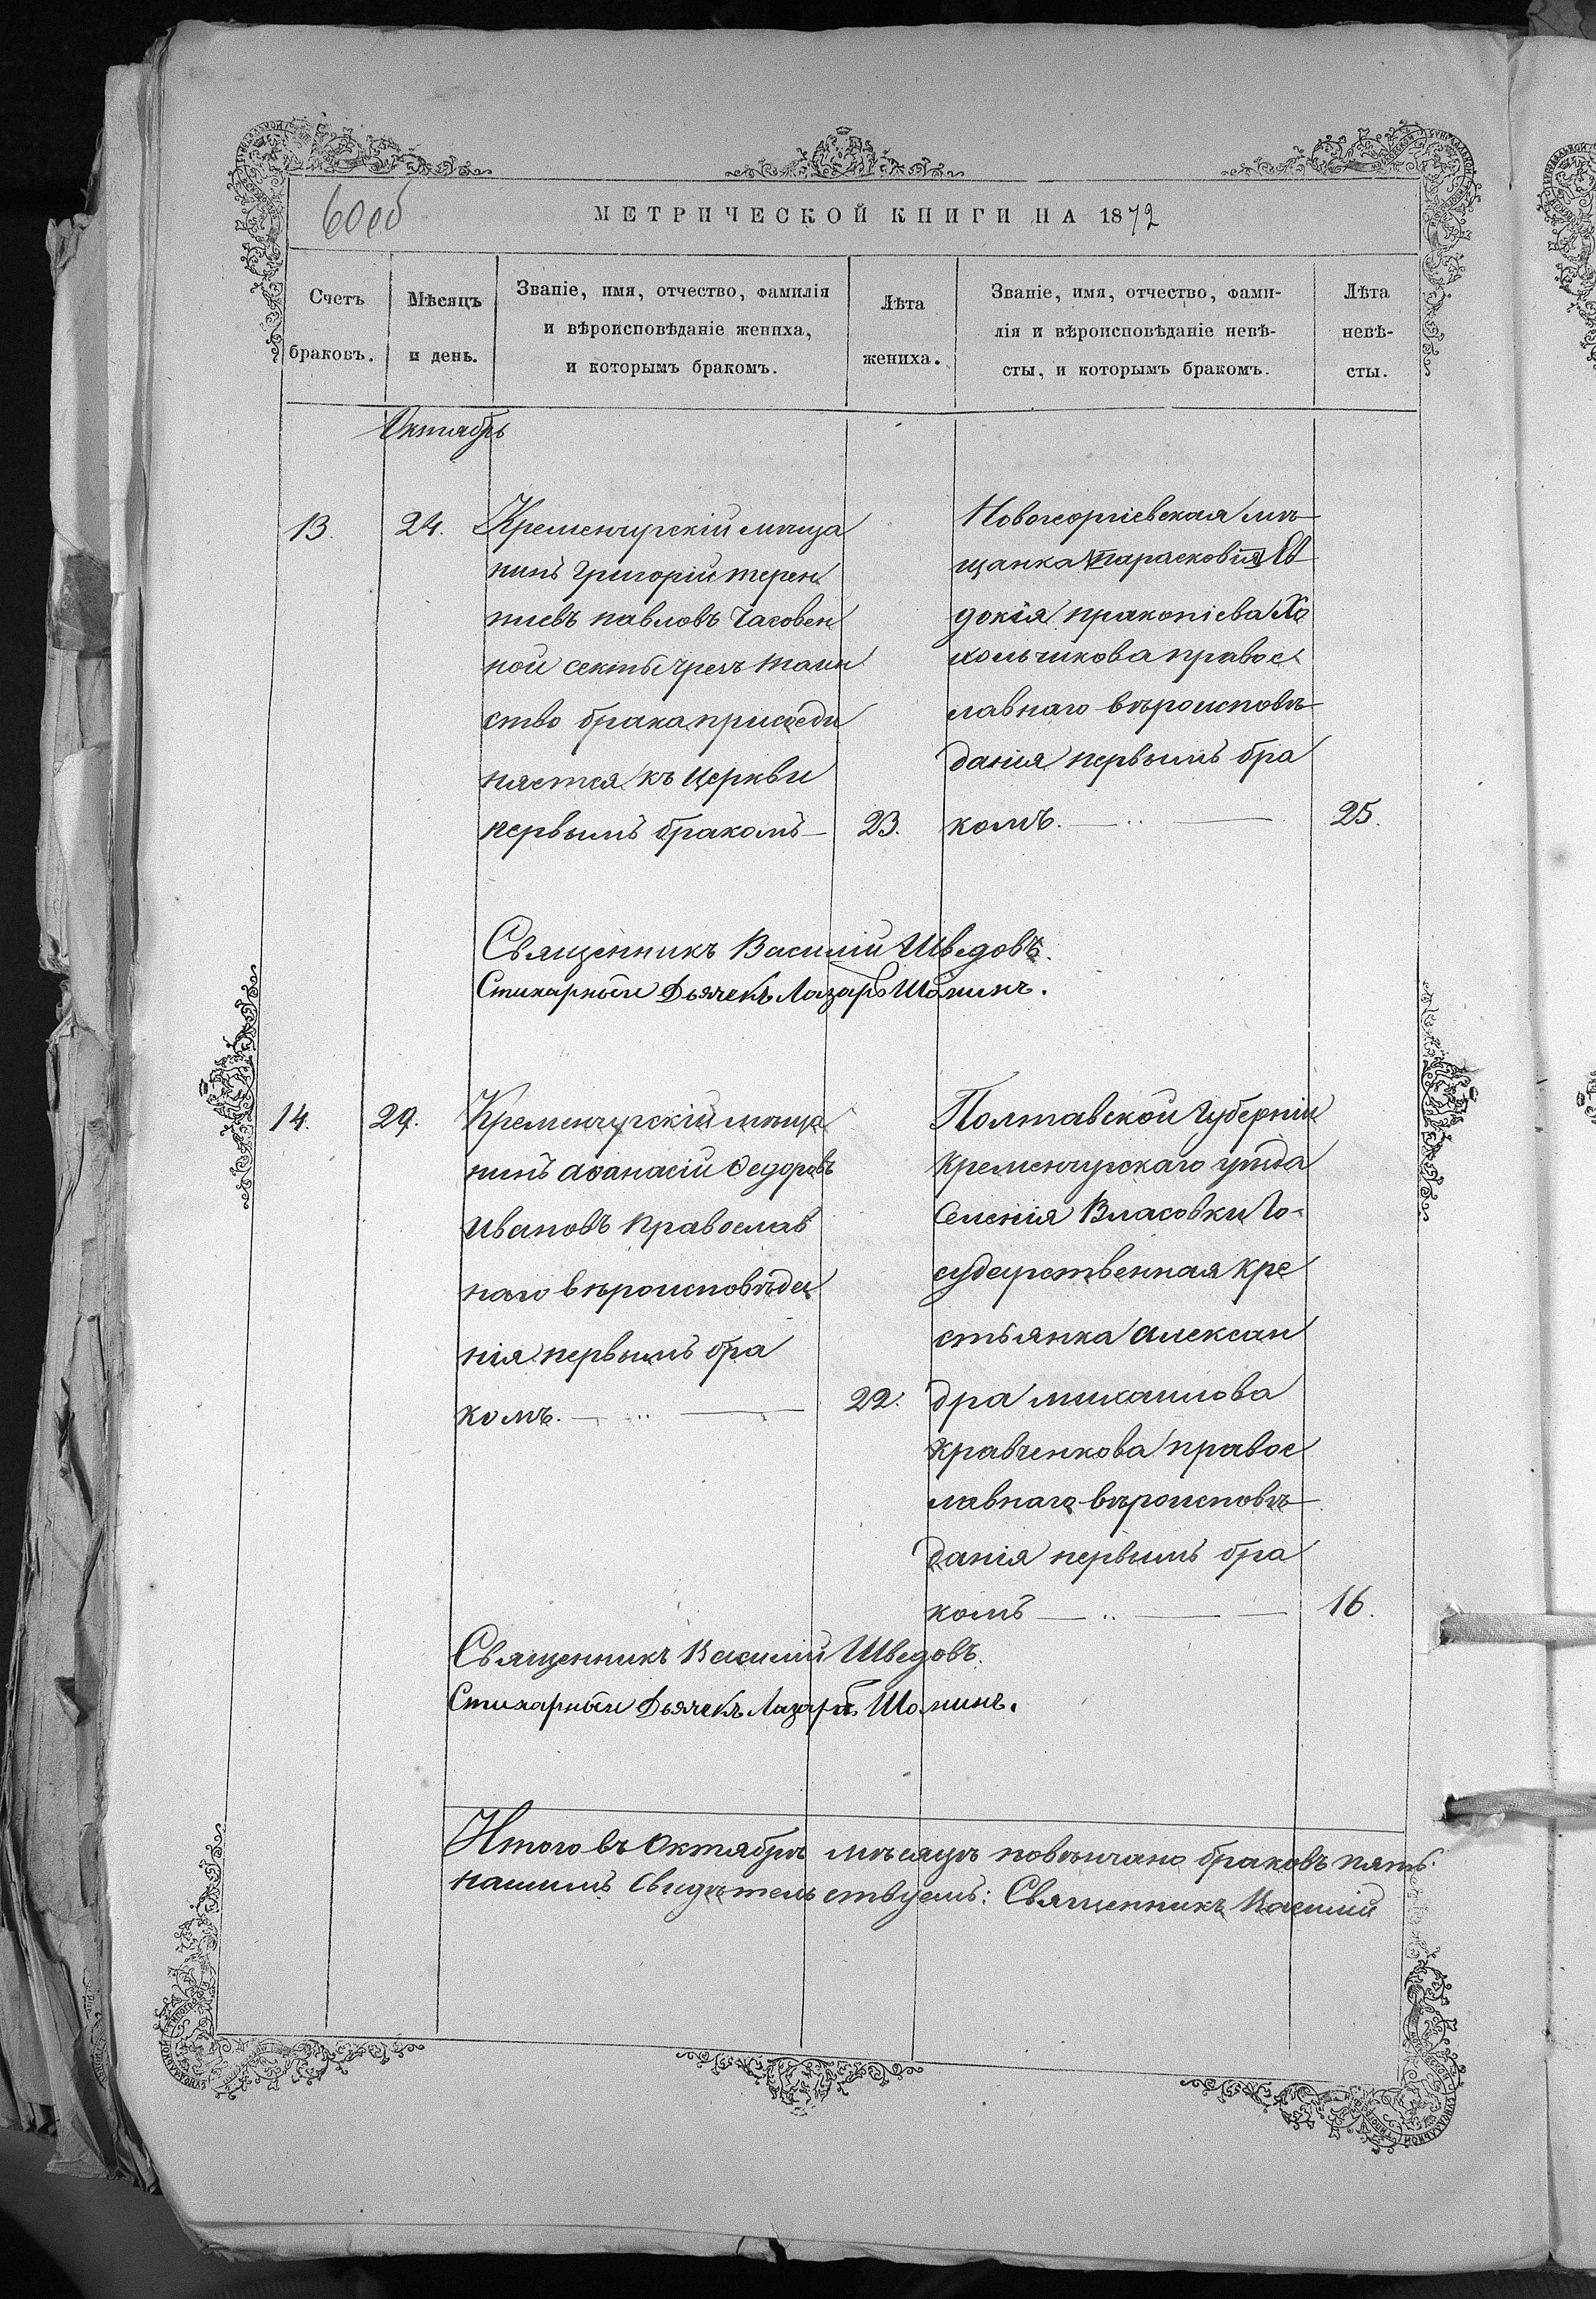 60 об
МЕТРИЧЕСКОЙ КНИГИ НА 1872
Счетъ
браковъ.
Мѣсяцъ
и день.
Званіе, имя, отчество, фамилія
и вѣроисповѣданіе жениха,
и которымъ бракомъ.
Лѣта
жениха.
Званіе, имя, отчество, фами-
лія и вѣроисповѣданіе невѣ-
сты, и которымъ бракомъ.
Лѣта
невѣ-
сты.
Октябрь
13.
24.
Кременчугскій мѣща
нинъ Григорій терен
тиевъ павловъ Часовен
ной секты чрезъ таин
ство брака присоеди
няется къ Церкви
первымъ бракомъ
23.
Новогеоргіевская мѣ
щанка Парасковия Ев
докія пракопіева
кольчикова правос
лавнаго вѣроисповѣ
данія первымъ бра
комъ.
25.
Священникъ Василій Шведовъ.
Стихарный Дьячекъ Лазарь Шонинъ.
14.
29.
Кременчугскій мѣща
нинъ аѳанасій Ѳедоровъ
Ивановъ православ
наго вѣроисповѣда
нія первымъ бра
комъ.
22.
Полтавской Губерніи
Кременчугскаго уѣзда
Селенія Власовки Го-
сударственная кре
стьянка Алексан
дра михаилова
кравченкова правос
лавнаго вѣроисповѣ
данія первымъ бра
комъ
16.
Священникъ Василій Шведовъ.
Стихарный Дьячекъ Лазарь Шонинъ.
Итого въ Октябрѣ мѣсяцѣ повѣнчано браковъ пять.
Свидѣтельствуемъ: Священникъ Василій